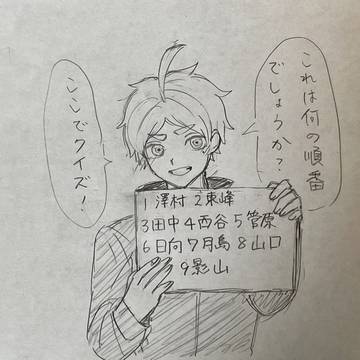 これは何の順番
でしょうか?
ここでクイズ!
1澤村 2東峰
3田中 4西谷 5管原
6日向 7月島 8山口
9影山